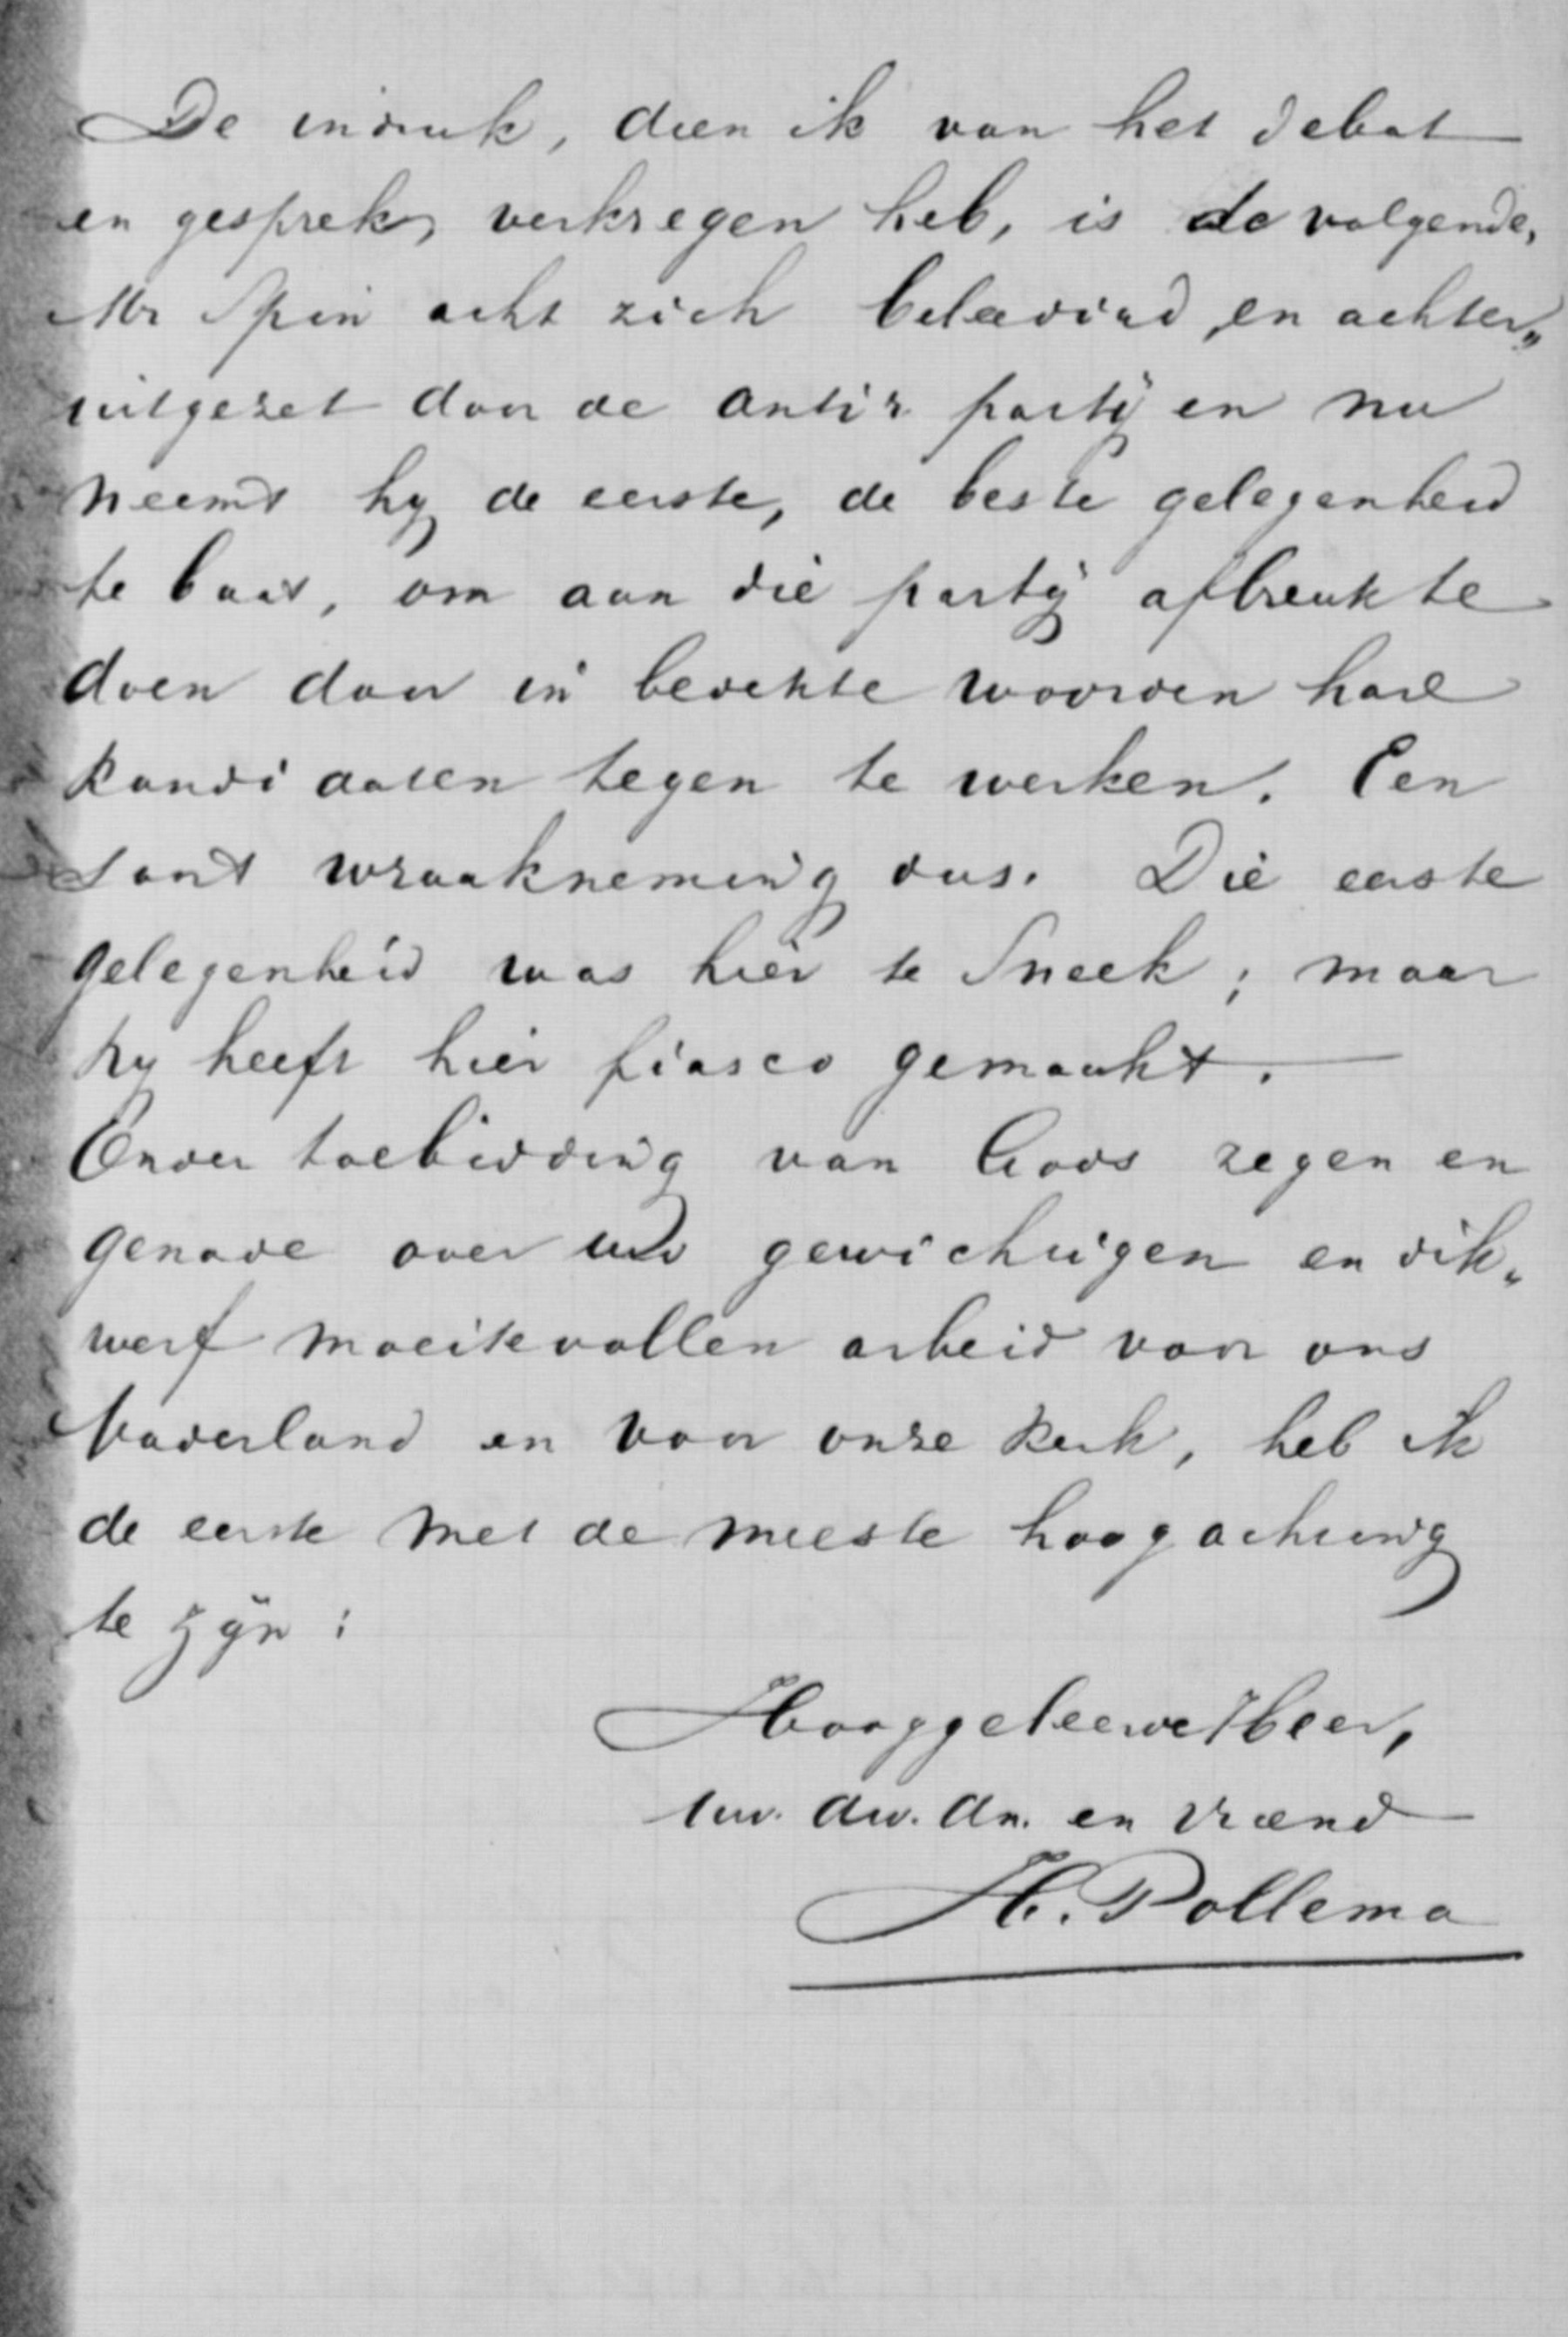 De indruk, dien ik van het debat
en gesprek, verkregen heb, is de volgende,
Mr Spin acht zich beleedigd, en achter„
uitgezet door de antir partij en nu
neemt hij de eerste, de beste gelegenheid
te baat, om aan die partij afbreuk te
doen door in bedekte woorden hare
kandidaten tegen te werken. Een
soort wraakneming dus. Die eerste
gelegenheid was hier te Sneek; maar
hij heeft hier fiasco gemaakt.
Onder toebidding van Gods zegen en
genade over uw gewichtigen en dik„
werf moeitevollen arbeid voor ons
Vaderland en voor onze kerk, heb ik
de eerste met de meeste hoogachting
te zijn:
Hooggeleerde Heer,
Uw. dw. dn. en vriend
H. Pollema